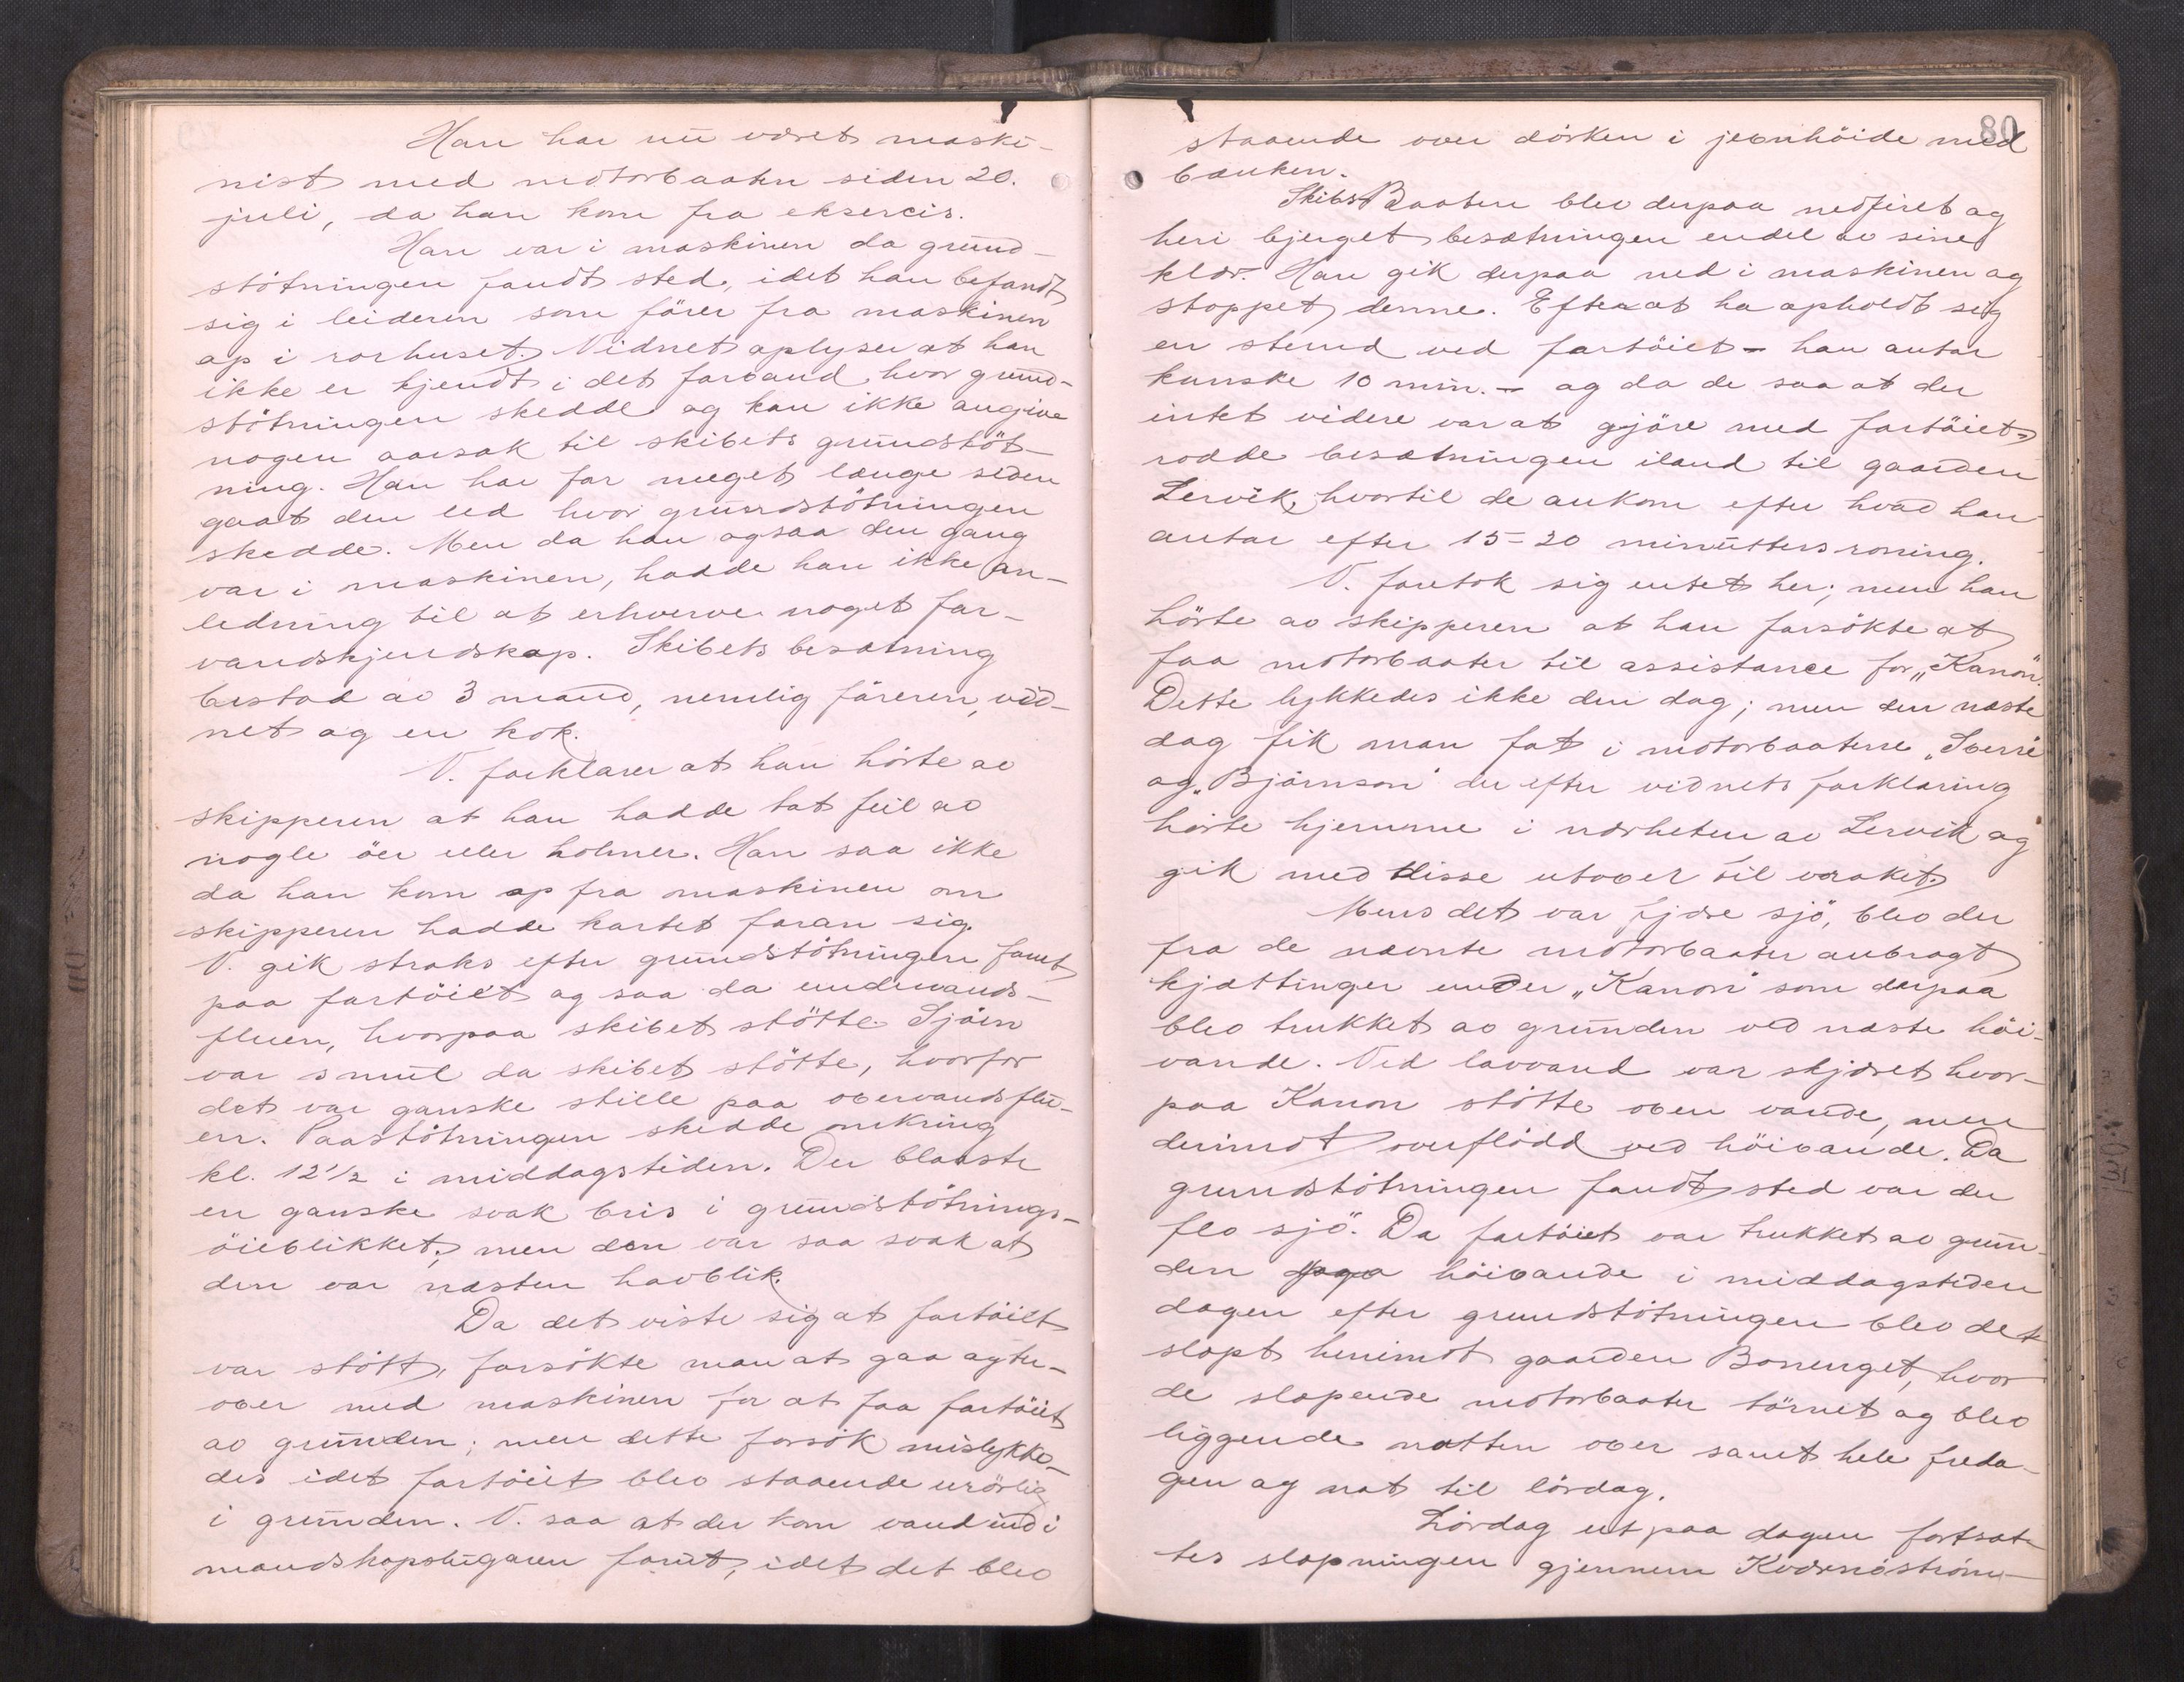 Han har nu været maski-
nist med motorbaaten siden 20.
juli, da han kom fra eksercis.
Han var i maskinen da grund-
stötningen fandt sted, idet han befandt
sig i leideren som förer fra maskinen
op i rorhuset. Vidnet oplyser at han
ikke er kjendt i det farvand hvor grund-
stötningen skedde og kan ikke angive
nogen aarsak til skibets grundstöt-
ning. Han har for meget længe siden
gaat den led hvor grundstötningen
skedde. Men da han ogsaa den gang
var i maskinen, hadde han ikke an-
ledning til at erhverve noget far-
vandskjendskap. Skibets besætning
bestod av 3 mand, nemlig föreren, vid-
net og en kok.
V. forklarer at han hörte av
skipperen at han hadde tat feil av
nogle öer eller holmer. Han saa ikke
da han kom op fra maskinen om
skipperen hadde kartet foran sig.
V. gik straks efter grundstötningen forut
paa fartöiet og saa da undervands-
fluen, hvorpaa skibet stötte. Sjöen
var smul da skibet stötte, hvorfor
det var ganske stille paa overvandsflu-
en. Paastötningen skedde omkring
kl. 12½ i middagstiden. Der blaaste
en ganske svak bris i grundstötnings-
öieblikket, men den var saa svak at
den var næsten havblik.
Da det viste sig at fartöiet
var stött, forsökte man at gaa agter-
over med maskinen for at faa fartöiet
av grunden; men dette forsök mislykke-
des idet fartöiet blev staaende urörlig
i grunden. V. saa at der kom vand ind i
mandskapslugaren forut, idet det blev
80
staaende over dörken i jevnhöide med
bænken.
Skibs Baaten blev derpaa nedfiret og
heri bjerget besætningen endel av sine
klær. Han gik derpaa ned i maskinen og
stoppet denne. Efterat ha opholdt sig
en stund ved fartöiet - han antar
kanske 10 min. - og da de saa at der
intet videre var at gjöre med fartöiet,
rodde besætningen iland til gaarden
Lervik, hvortil de ankom efter hvad han
antar efter 15-20 minutters roning.
V. foretok sig intet her; men han
hörte av skipperen at han forsökte at
faa motorbaater til assistance for „Kanon".
Dette lykkedes ikke den dag; men den næste
dag fik man fat i motorbaatene „Sverre"
og „Björnson" der efter vidnets forklaring
hörte hjemme i nærheten av Lervik og
gik med disse utover til vraket.
Mens det var fjære sjö, blev der
fra de nævnte motorbaater anbragt
kjættinger under „Kanon" som derpaa
blev trukket av grunden ved næste höi-
vande. Ved lavvand var skjæret hvor-
paa Kanon stötte over vande, men
derimot overflödd ved höivande. Da
grundstötningen fandt sted var der
flo sjö. Da fartöiet var trukket av grun-
den höivande i middagstiden
dagen efter grundstötningen blev det
slæpt henimot gaarden Bonenget, hvor
de slæpende motorbaater törnet og blev
liggende natten over samt hele freda-
gen og nat til lördag.
Lördag ut paa dagen fortsat-
tes slæpningen gjennem